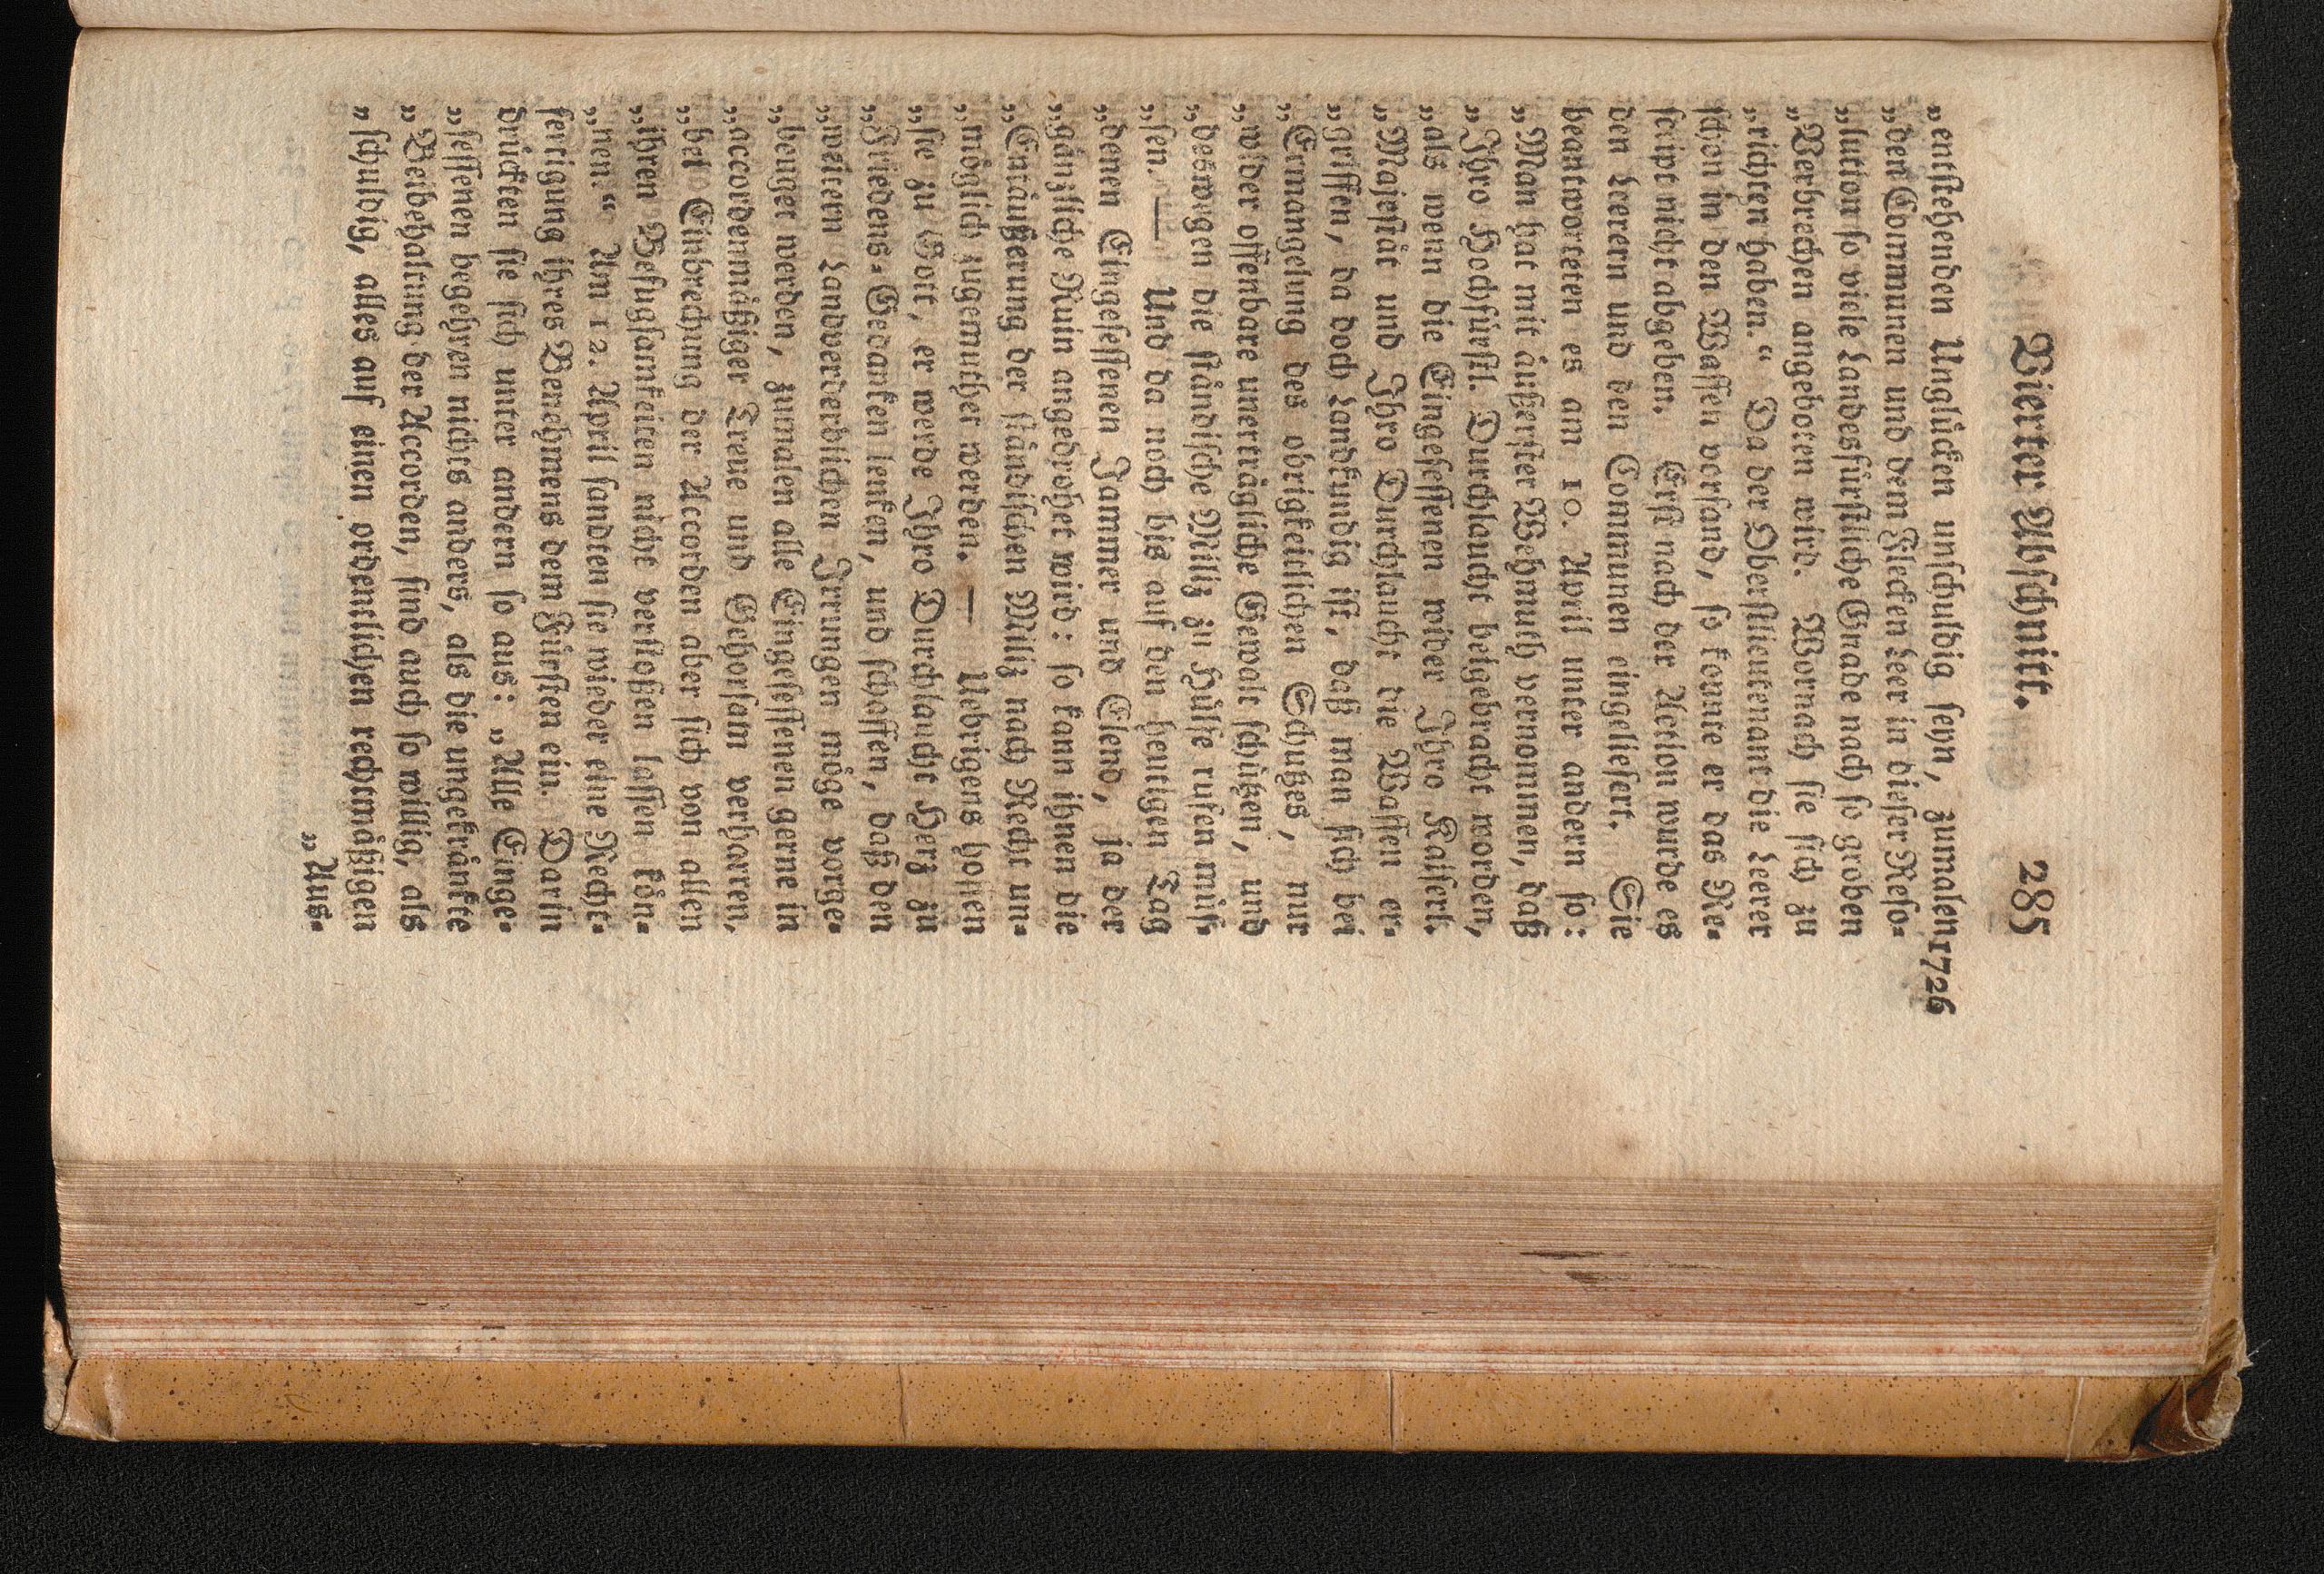 Vierter Abſchnitt. 285
„entſtehenden Unglücken unſchuldig ſeyn, zumalen 1726
„den Communen und dem Flecken Leer in dieſer Reſo-
„lution ſo viele Landesfürſtliche Gnade nach ſo groben
„Verbrechen angeboten wird. Wornach ſie ſich zu
„richten haben.“ Da der Oberſtlieutenant die Leerer
ſchon in den Waffen vorfand, ſo konnte er das Re-
ſcript nicht abgeben. Erſt nach der Action wurde es
den Leerern und den Communen eingeliefert. Sie
beantworteten es am 10. April unter andern ſo:
„Man hat mit äußerſter Wehmuth vernommen, daß
„Ihro Hochfürſtl. Durchlaucht beigebracht worden,
„als wenn die Eingeſeſſenen wider Ihro Kaiſerl.
„Majeſtät und Ihro Durchlaucht die Waffen er-
„griffen, da doch landkundig iſt, daß man ſich bei
„Ermangelung des obrigkeitlichen Schutzes, nur
„wider offenbare unerträgliche Gewalt ſchützen, und
„deswegen die ſtändiſche Militz zu Hülfe rufen müſ-
„ſen. — Und da noch bis auf den heutigen Tag
„denen Eingeſeſſenen Jammer und Elend, ja der
„gänzliche Ruin angedrohet wird: ſo kann ihnen die
„Entäußerung der ſtändiſchen Militz nach Recht un-
„möglich zugemuthet werden. — Uebrigens hoffen
„ſie zu Gott, er werde Ihro Durchlaucht Herz zu
„Friedens-Gedanken lenken, und ſchaffen, daß den
„weitern landverderblichen Irrungen möge vorge-
„beuget werden, zumalen alle Eingeſeſſenen gerne in
„accordenmäßigger Treue und Gehorſam verharren,
„bei Einbrechung der Accorden aber ſich von allen
„ihren Befugſamkeiten nicht verſtoßen laſſen kön-
„nen.“ Am 12. April ſandten ſie wieder eine Recht-
fertigung ihres Benehmens dem Fürſten ein. Darin
drückten ſie ſich unter andern ſo aus: „Alle Einge-
„ſeſſenen begehren nichts anders, als die ungekränkte
„Beibehaltung der Accorden, ſind auch ſo willig, als
„ſchuldig, alles auf einen ordentlichen rechtmäßigen
„Aus-